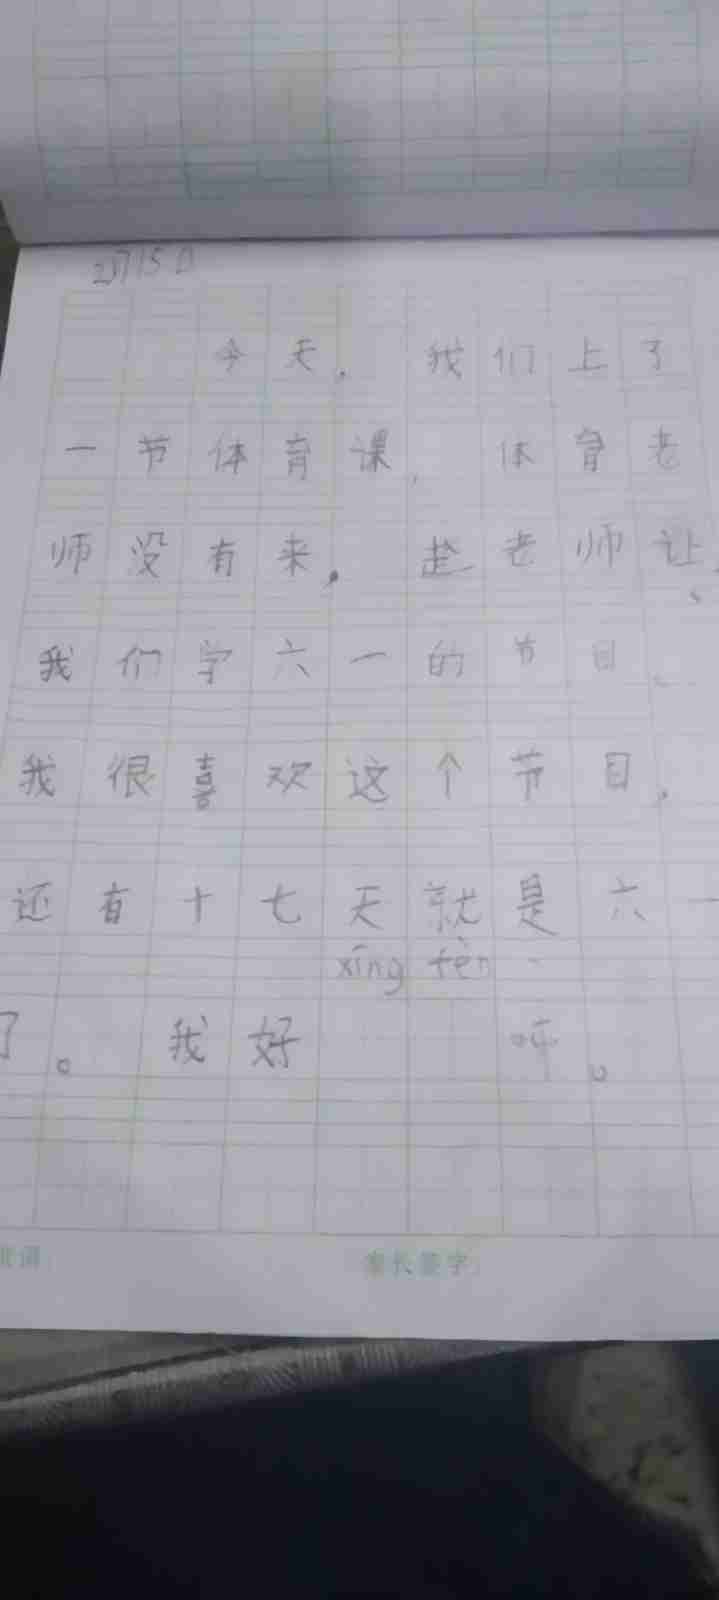 今天，我们上了
一节体育课，体育老
师没有来，赵老师让
我们学六一的节目。
我很喜欢这个节目，
还有十七天就是六一
xīng fèn
了。我好 呀。
家长签字